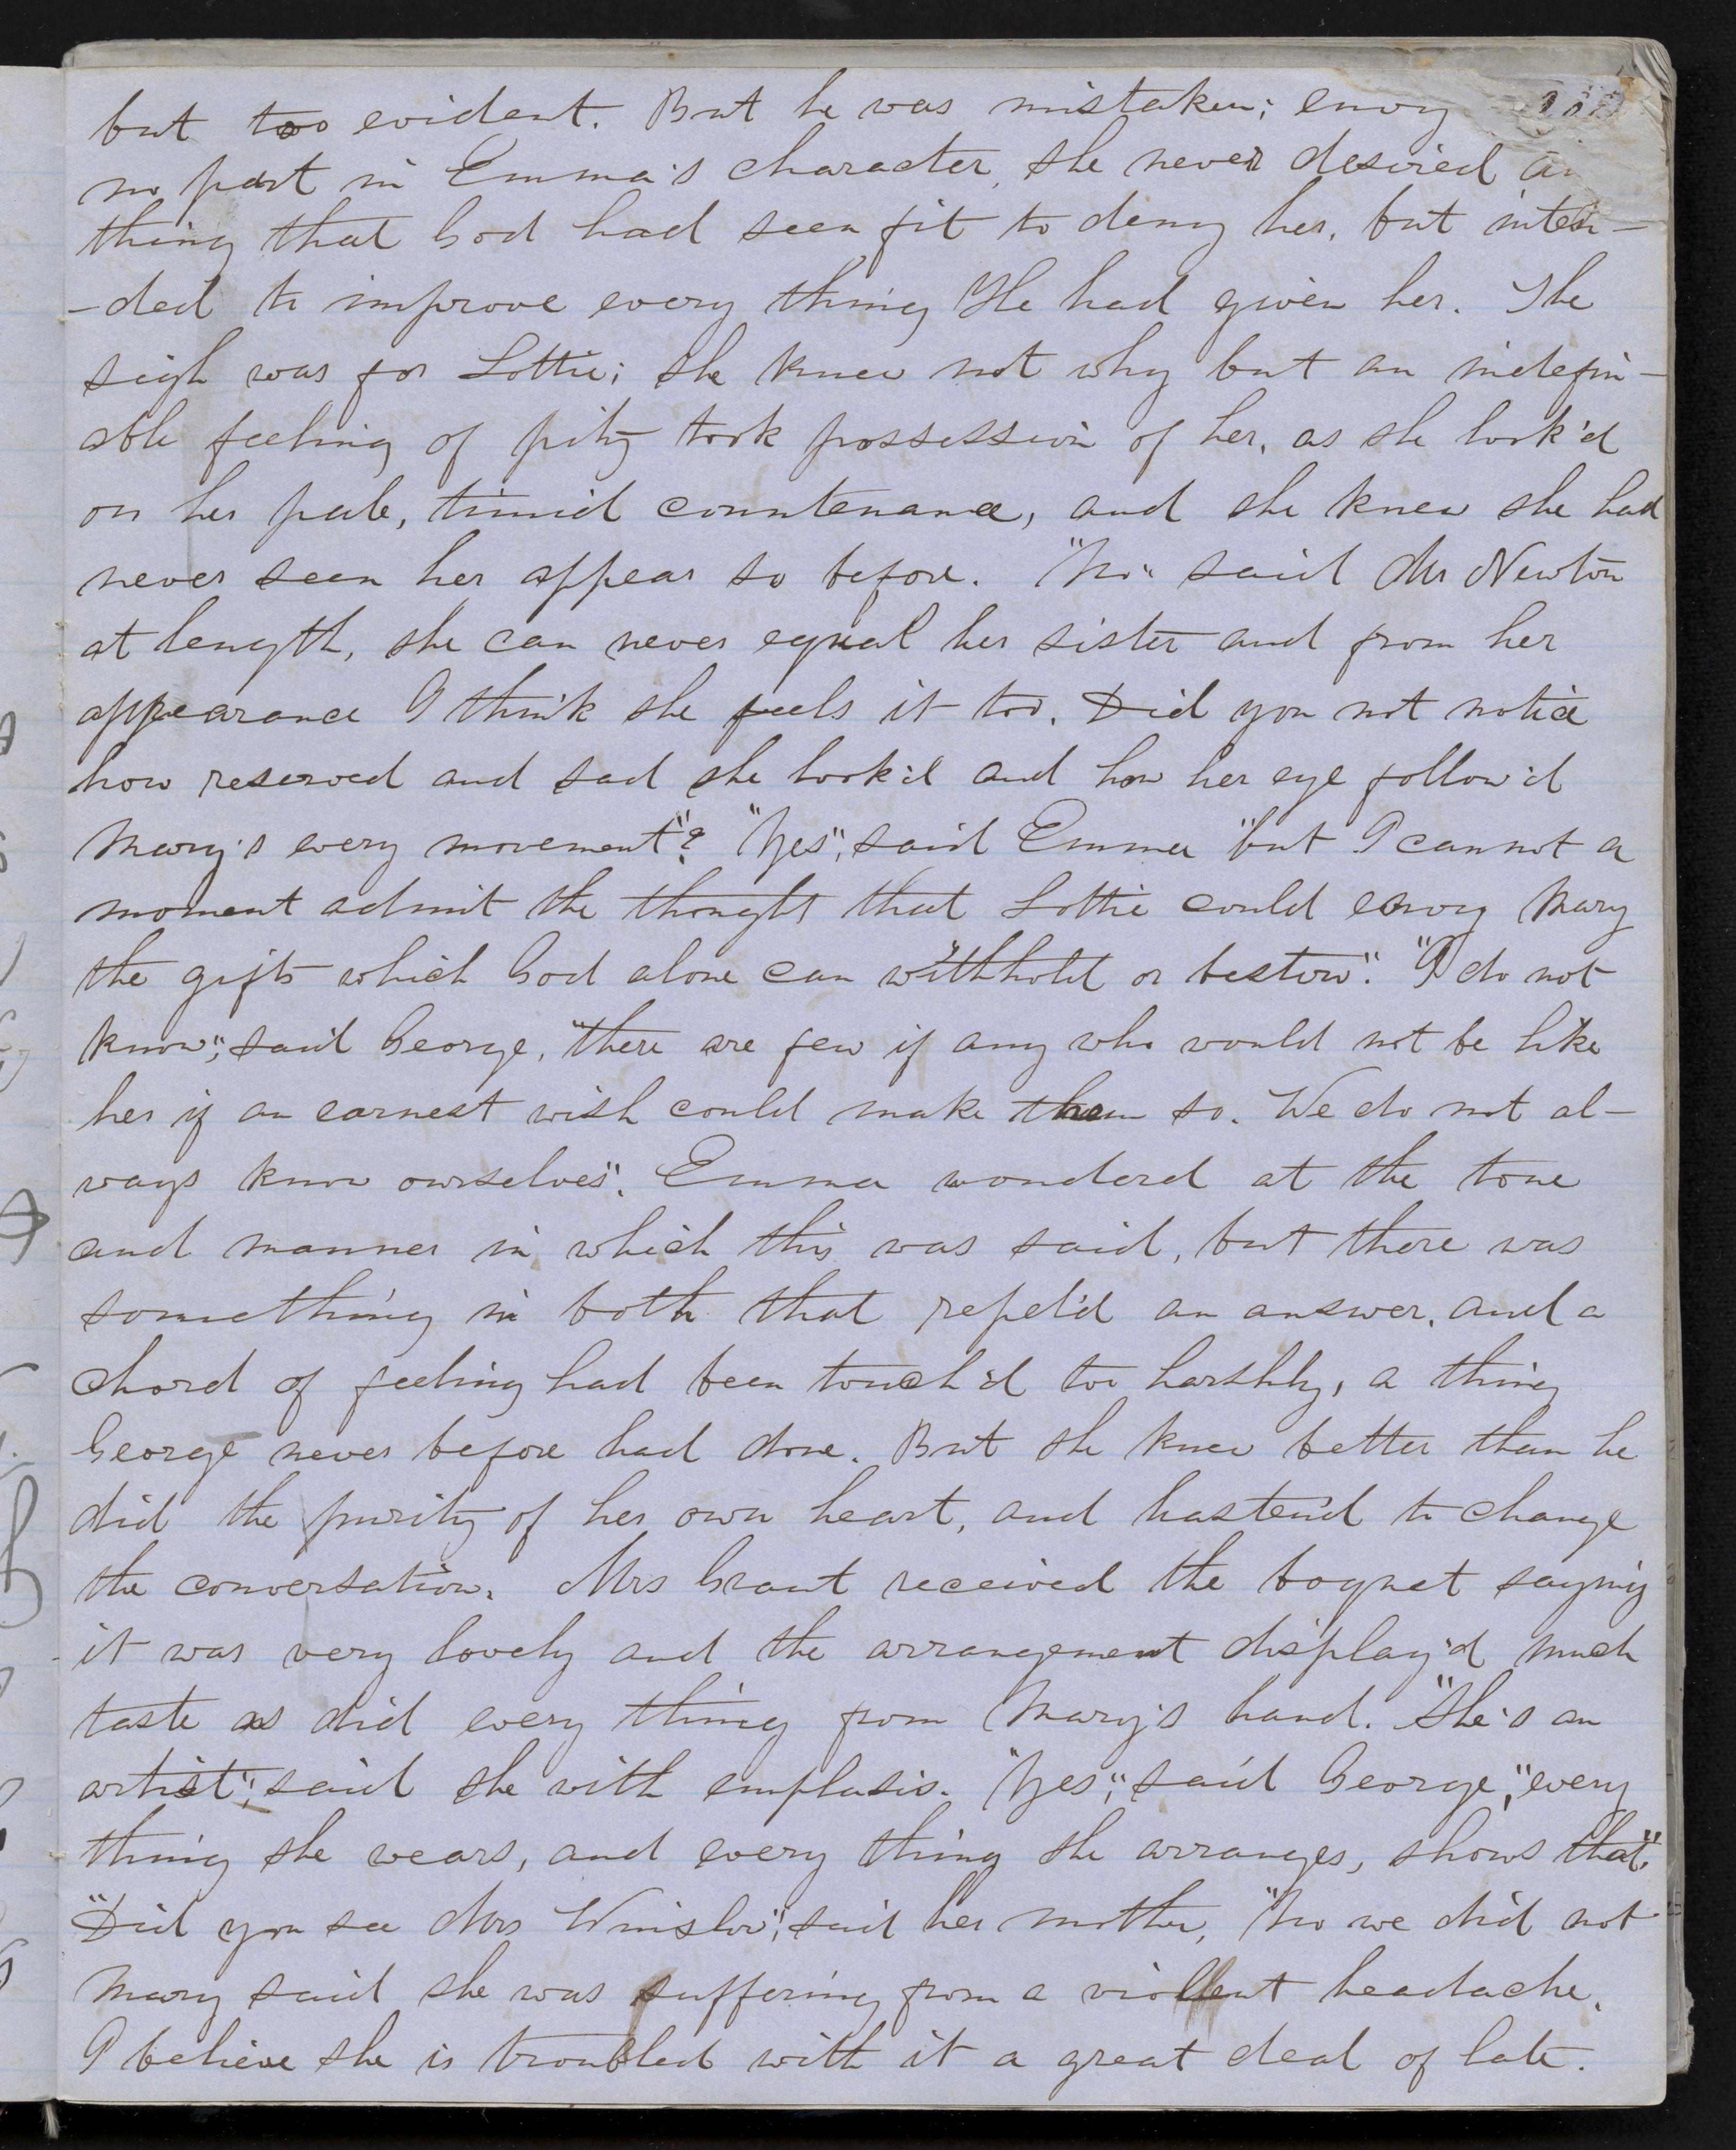 but too evident. But he was mistaken; envy
no part in Emma's character, she never desired
thing that God had seen fit to deny her, but inten-
-ded to improve every thing He had given her. The
sigh was for Lottie; she knew not why but an indefin-
able feeling of pity took possession of her, as she look'd
on her pale, timid countenance, and she knew she had
never seen her appear so before. "No" said Mr Newton
at length, she can never equal her sister and from her
appearance I think she feels it too. Did you not notice
how reserved and sad she look'd and how her eye follow'd
Mary's every movement"? "Yes", said Emma "but I cannot a
moment admit the thought that Lottie could envy Mary
the gifts which God alone can withhold or bestow". "I do not
know", said George, "there are few if any who would not be like
her if an earnest wish could make them so. We do not al-
ways know ourselves". Emma wonderd at the tone
and manner in which this was said, but there was
something in both that repel'd an answer, and a
chord of feeling had been touch'd too harshly, a thing
George never before had done. But she knew better than he
did the purity of her own heart, and hasten'd to change
the conversation. Mrs Grant received the boquet saying
it was very lovely and the arrangement display'd much
taste as did every thing from Mary's hand. "She's an
artist", said she with emphasis. "Yes", said George, "every
thing she wears, and every thing she arranges, shows that".
"Did you see Mrs Winslow", said her mother, "No we did not
Mary said she was suffering from a violent headache.
I believe she is troubled with it a great deal of late.